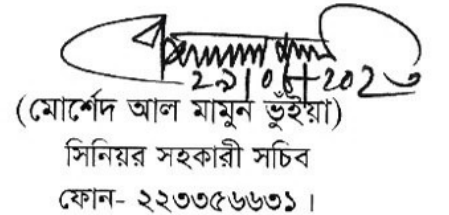 (মোর্শেদ আল মামুন ভুঁইয়া)
সিনিয়র সহকারী সচিব
ফোন- ২২৩৩৫৬৬৩১ ।